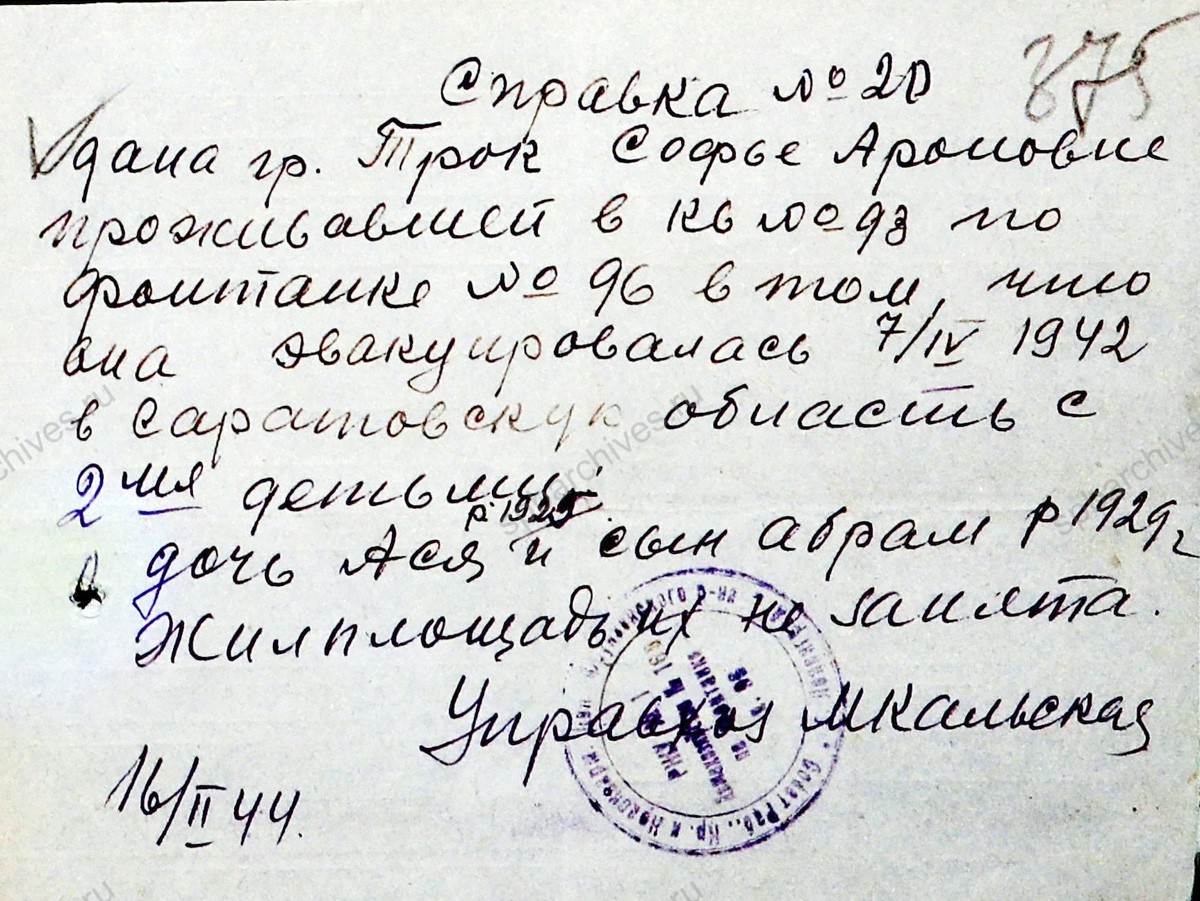 875
Справка № 20
дана гр. Трок Софье Ароновне
проживавшей в кв № 93 по
Фонтанке № 96 в том, что
она эвакуировалась 7/IV 1942
в Саратовскую область с
2мя детьми:
р 1925
дочь Ася и сын Абрам р 1929г
Жилплощадь их не занята.
Управхоз Мкальская
16/II 44.
Совет Раб., Кр. и Красноарм.
РЖУ
по Фонтанке
д. 96
spbarchives.ru